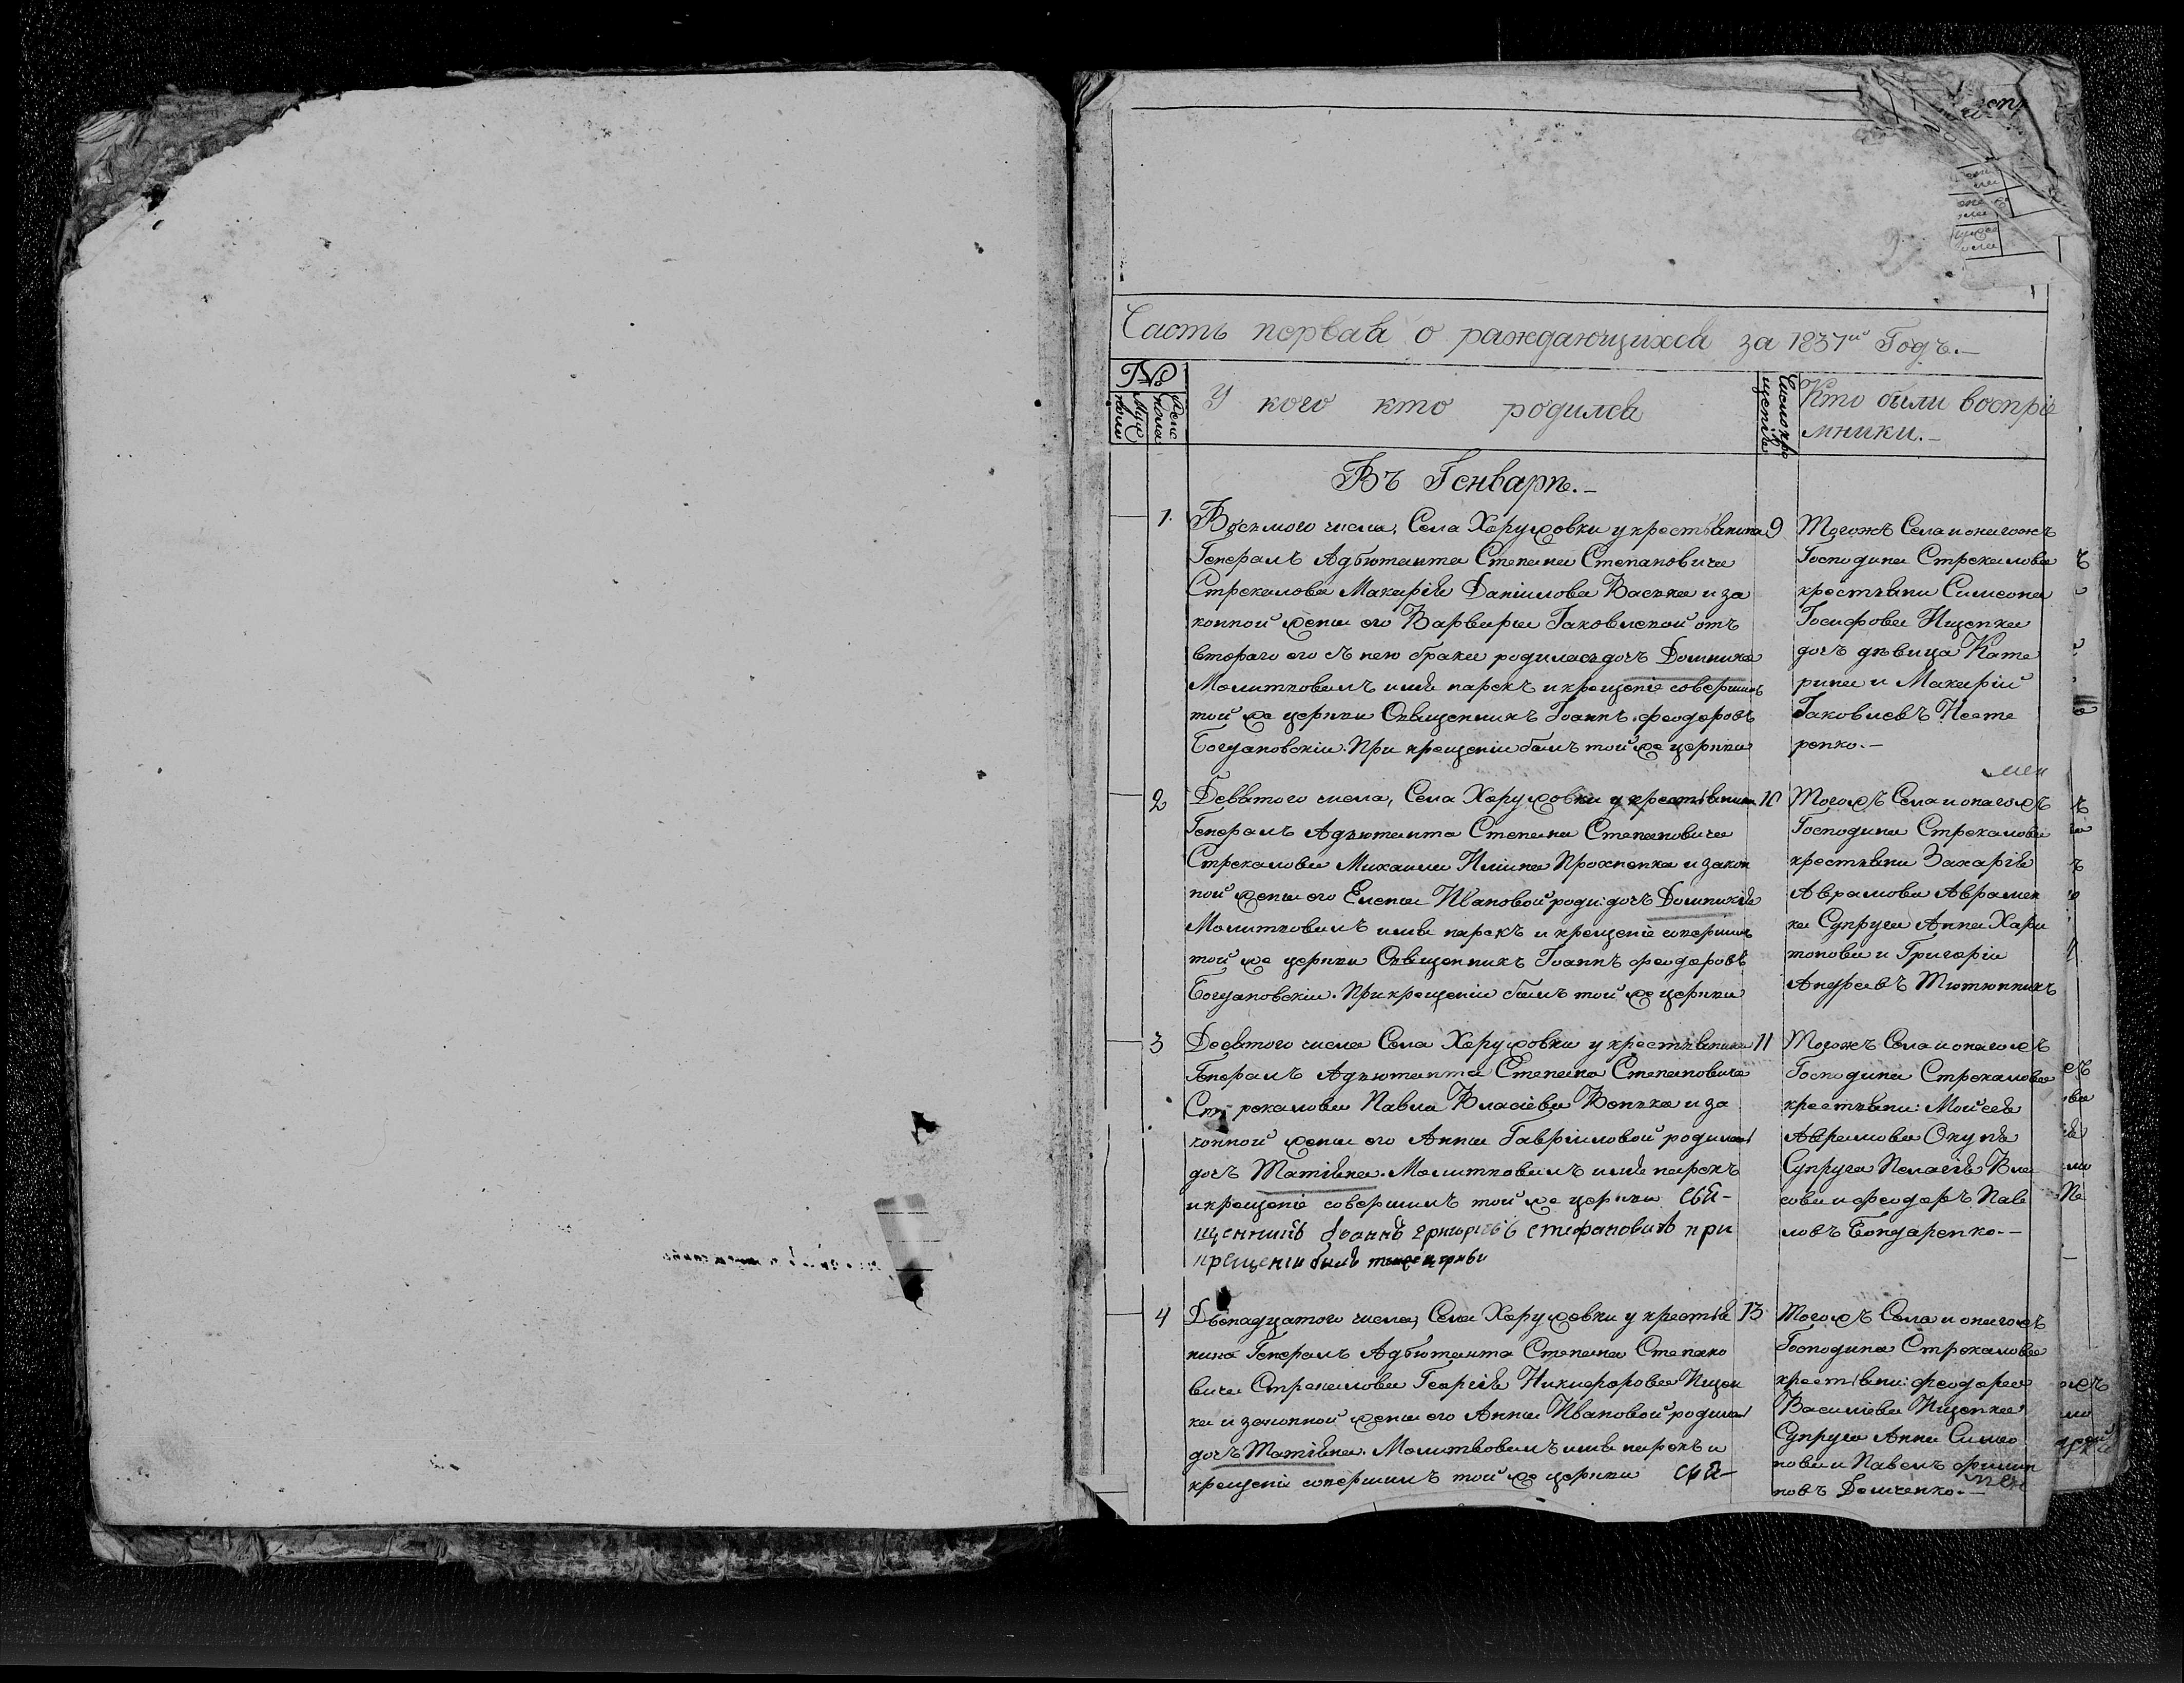 Часть первая о раждающихся за 1837й Годъ.
№
Муж
ескъ
Жен
ска
У кого кто родился
Число кре
щенія
Кто были воспріе
мники.
Въ Генварѣ.
1 Восьмого числа, Села Хоружовки у крестьянина 9
Генералъ Адъютанта Степана Степановича
Стрекалова Макарія Даніилова Васька и за
конной жены его Варвары Іаковлевой отъ
втораго его съ нею брака родилась дочь Домника
Молитвовалъ имя нарекъ и крещеніе совершилъ
той же церкви Священникъ Іоаннъ Феодоровъ
Богдановскій. При крещеніи былъ той же церкви
Тогожъ Села и онагожъ
Господина Стрекалова
крестьяни Симеона
Іосифова Ищенка
дочь дѣвица Кате
рина и Макарій
Іаковлевъ Несте
ренко.
2 Девятого числа, Села Хоружовки у крестьянина 10
Генералъ Адъютанта Степана Степановича
Стрекалова Михаила Иліина Прохненка и закон
ной жены его Елены Ивановой роди: дочь Домникія
Молитвовалъ имя нарекъ и крещеніе совершилъ
той же церкви Священникъ Іоаннъ Феодоровъ
Богдановскій. При крещеніи былъ той же церкви
Тогожъ Села и онагожъ
Господина Стрекалова
крестьяни Захарія
Аврамова Авраменка
ка Супруга Анна Хари
тонова и Григорій
Андреевъ Тютюнникъ
3 Девятого числа Села Хоружовки у крестьянина 11
Генералъ Адъютанта Степана Степановича
Стрекалова Павла Власіева Венька и за
конной жены его Анны Гавріиловой родилась
дочь Татіяна. Молитвовалъ имя нарекъ
и крещеніе совершилъ той же церкви Свя-
щенникъ Іоаннъ Григорієвъ Стефановичъ при
крещеніи былъ тоеже церкви
Тогожъ Села и онагожъ
Господина Стрекалова
крестьяни: Моисея
Аврамова
Супруга Пелагія Вла
сова и Феодоръ Пав
ловъ Бондаренко.
4 Двенадцатого числа, Села Хоружовки у крестья 13
нина Генералъ Адъютанта Степана Степано
вича Стрекалова Георгія Никифорова Ищен
ка и законной жены его Анны Ивановой родилась
дочь Татіяна. Молитвовалъ имя нарекъ и
крещеніе совершилъ той же церкви Свя-
Тогожъ Села и онагожъ
Господина Стрекалова
крестьяни: Феодора
Василіева Ищенка
Супруга Анна Симео
нова и Павелъ Филип
повъ Демченко.